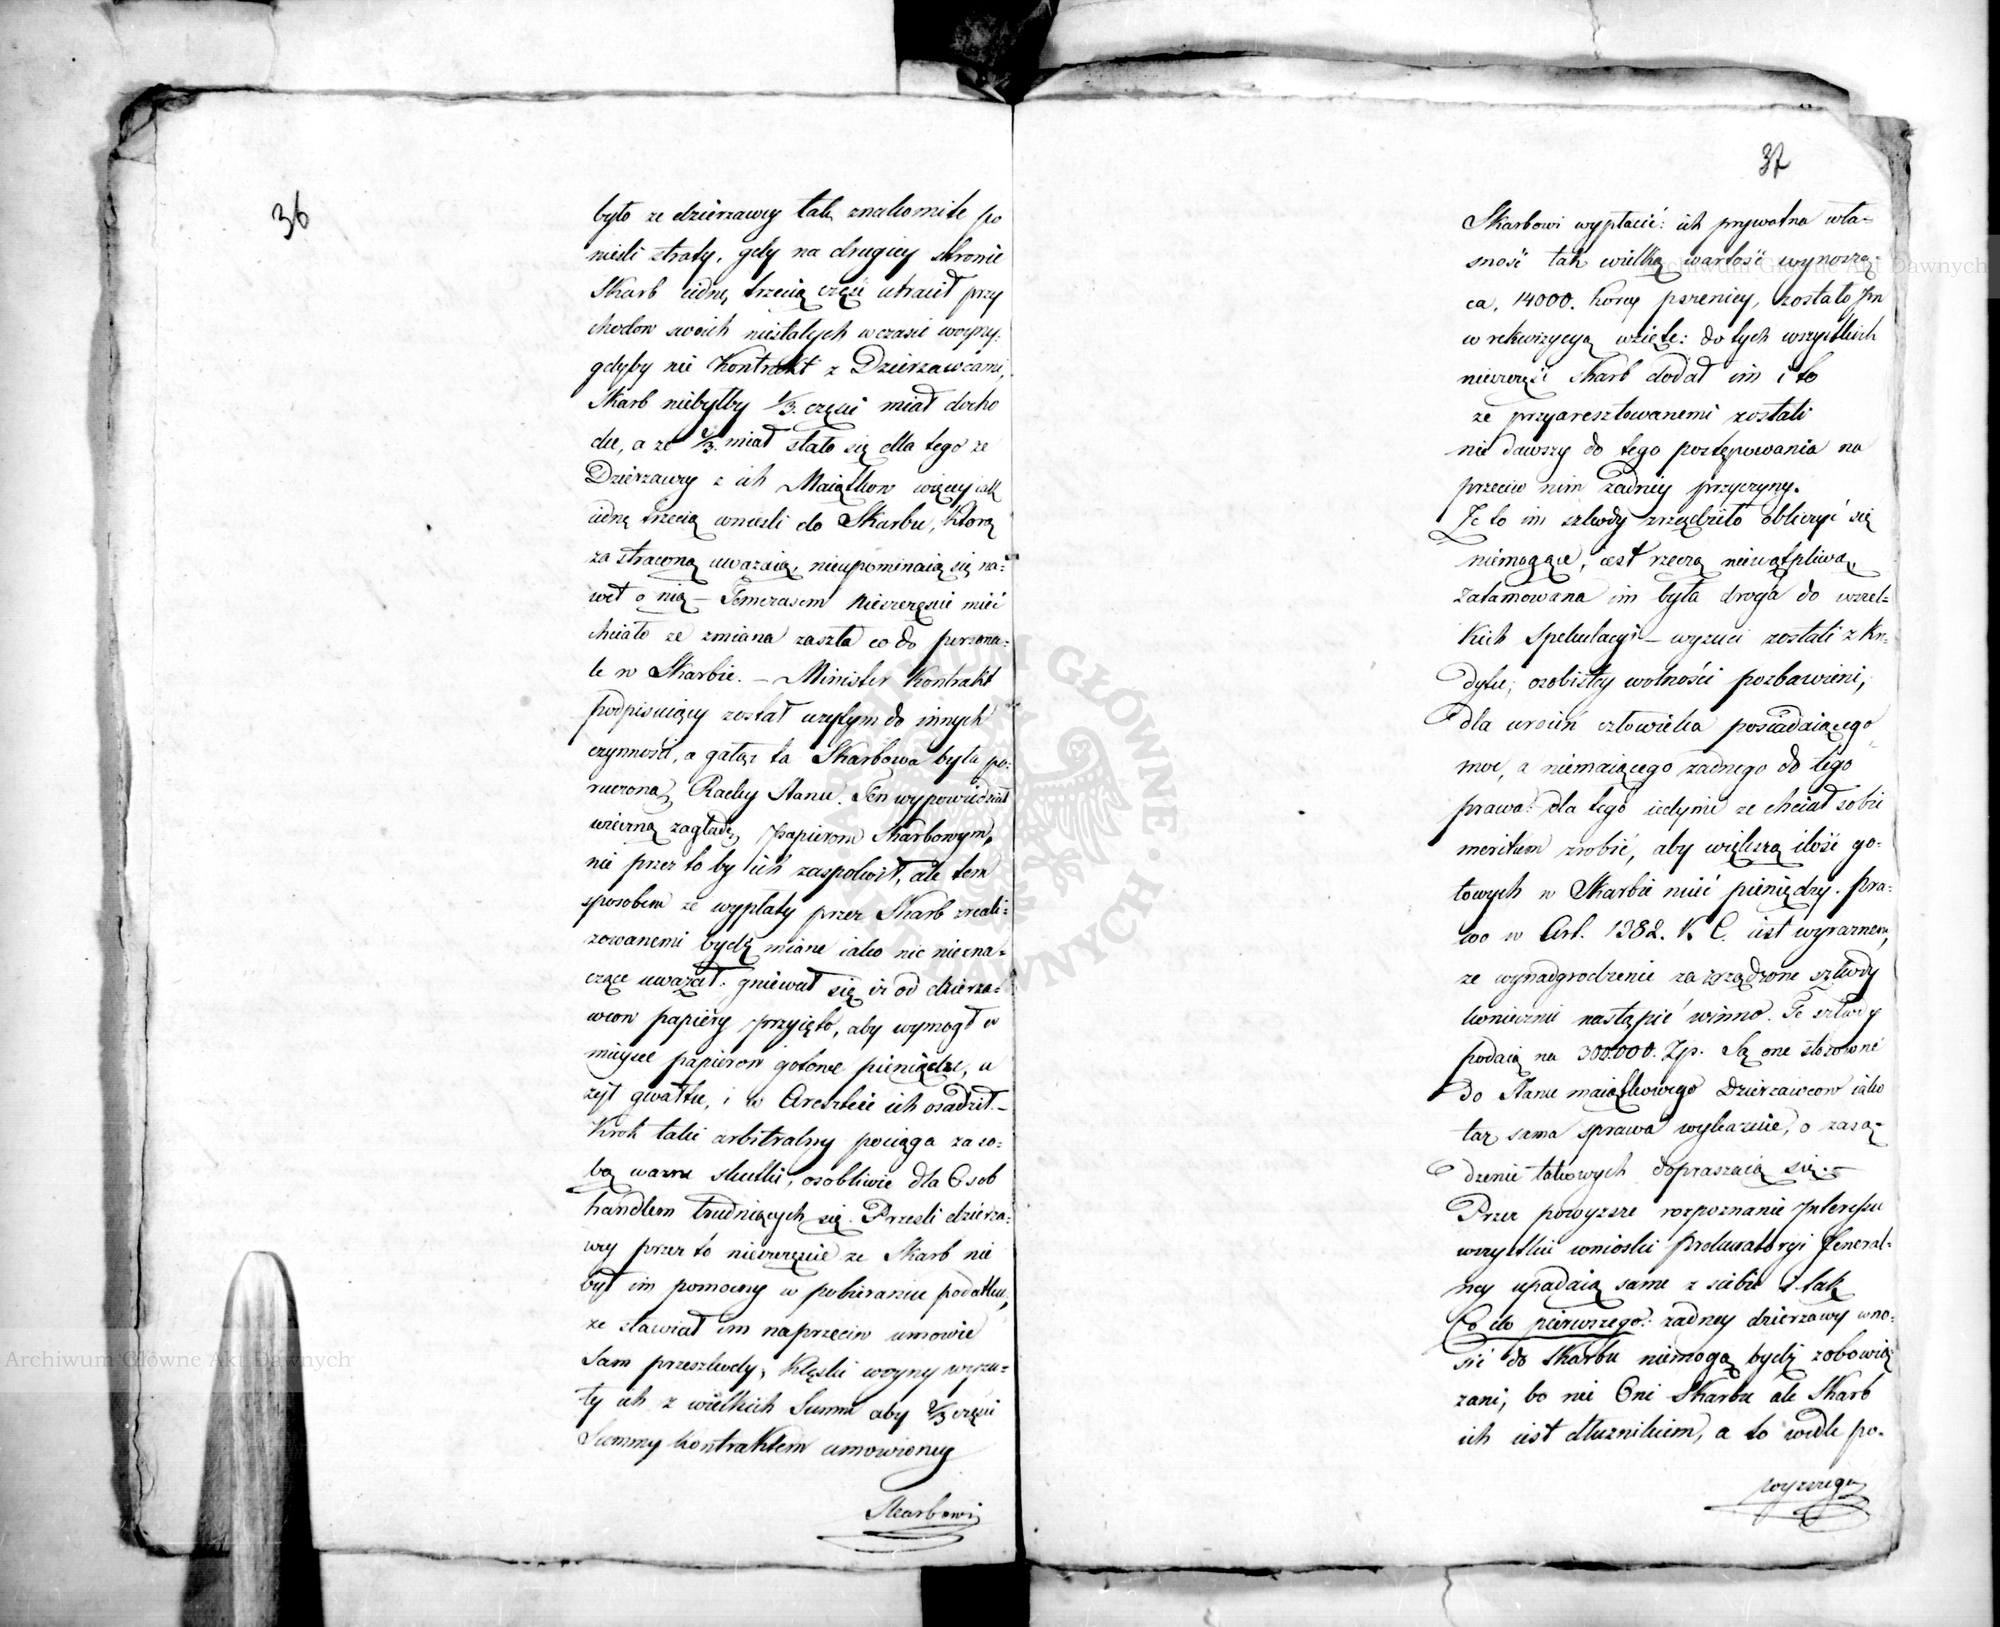 36
było ze dzierzawcy tak znakomite po
nieśli straty, gdy na drugiey stronie
Skarb iednę trzecią część utracił przy
chodow swoich niestałych w czasie woyny.
gdyby nie Kontrakt z Dzierzawcami,
Skarb niebyłby 1/3 części miał docho
du, a ze 1/3 miał stało się dla tego ze
Dzierzawcy z ich Maiątkow więcey iak
iednę trzecią wnieśli do Skarbu, którą
za straconą uwazaią, nieupominaią się na=
wet o nią – Tymczasem nieszczęście mieć
chciało ze zmiana zaszła co do persona=
le w Skarbie. – Minister Kontrakt
podpisuiący został uzytym do innych
czynności, a gałąź ta Skarbowa była po=
ruczoną Radcy Stanu. Ten wypowiedział
wieczną zagładę papierom Skarbowym,
nie przez to by ich zaspokoił, ale tem
sposobem ze wypłaty przez Skarb zreali=
zowanemi bydź miane iako nic niezna=
czące uwazał. gniewał się iż od dzierza=
wcow papiery przyięto, aby wymogł w
mieysce papierow gotowe pieniądze, u
zył gwałtu, i w Areszcie ich osadził. –
Krok taki arbitralny pociąga za so=
bą wazne skutki, osobliwie dla Osob
handlem trudniących się. Przeszli dzierza=
wcy przez to nieszczęście ze Skarb nie
był im pomocny w pobieraniu podatku,
ze stawiał im naprzeciw umowie
Sam przeszkody, Klęski woyny wyzu=
ły ich z wielkich Summ aby 2/3 części
Summy kontraktem umowioney
Skarbowi
37
Skarbowi wypłacić: ich prywatna wła=
sność tak wielką wartość wynoszą=
ca, 14000. Korcy pszenicy, zostało Im
w rekwizycyą wzięte: do tych wszystkich
nieszczęść skarb dodał im i to
ze przyaresztowanemi zostali
nie dawszy do tego postępowania na
przeciw nim zadney przyczyny.
Ze to im szkody zrządziło obliczyć się
niemogące, iest rzeczą niewątpliwą,
zatamowana im była droga do wszel=
kich Spekulacyi – wyzuci zostali z Kre=
dytu, osobistey wolności pozbawieni,
dla uroień człowieka posiadaiącego
moc, a niemaiącego zadnego do tego
prawa: dla tego iedynie ze chciał sobie
meritum zrobić, aby większą ilość go=
towych w Skarbie mieć pieniędzy. Pra=
wo w Art. 1382. K. C. iest wyraznem,
ze wynadgrodzenie za zrządzone szkody
koniecznie nastąpić winno. Te szkody
podaią na 300.000. Zp. Są one stosowne
do Stanu maiątkowego Dzierzawcow iako
taz sama sprawa wykazuie, o zasą=
dzenie takowych dopraszaią się. –
Przez powyzsze rozpoznanie Interessu
wszystkie wnioski Prokuratoryi General=
ney upadaią same z siebie i tak
Co do pierwszego: zadney dzierzawy wno=
sić do skarbu niemogą bydź zobowią
zani, bo nie Oni Skarbu ale Skarb
ich iest dłuznikiem, a to wedle po=
wyzszego
Archiwum Główne Akt Dawnych
Archiwum Główne Akt Dawnych
ARCHIWUM GŁÓWNE AKT DAWNYCH